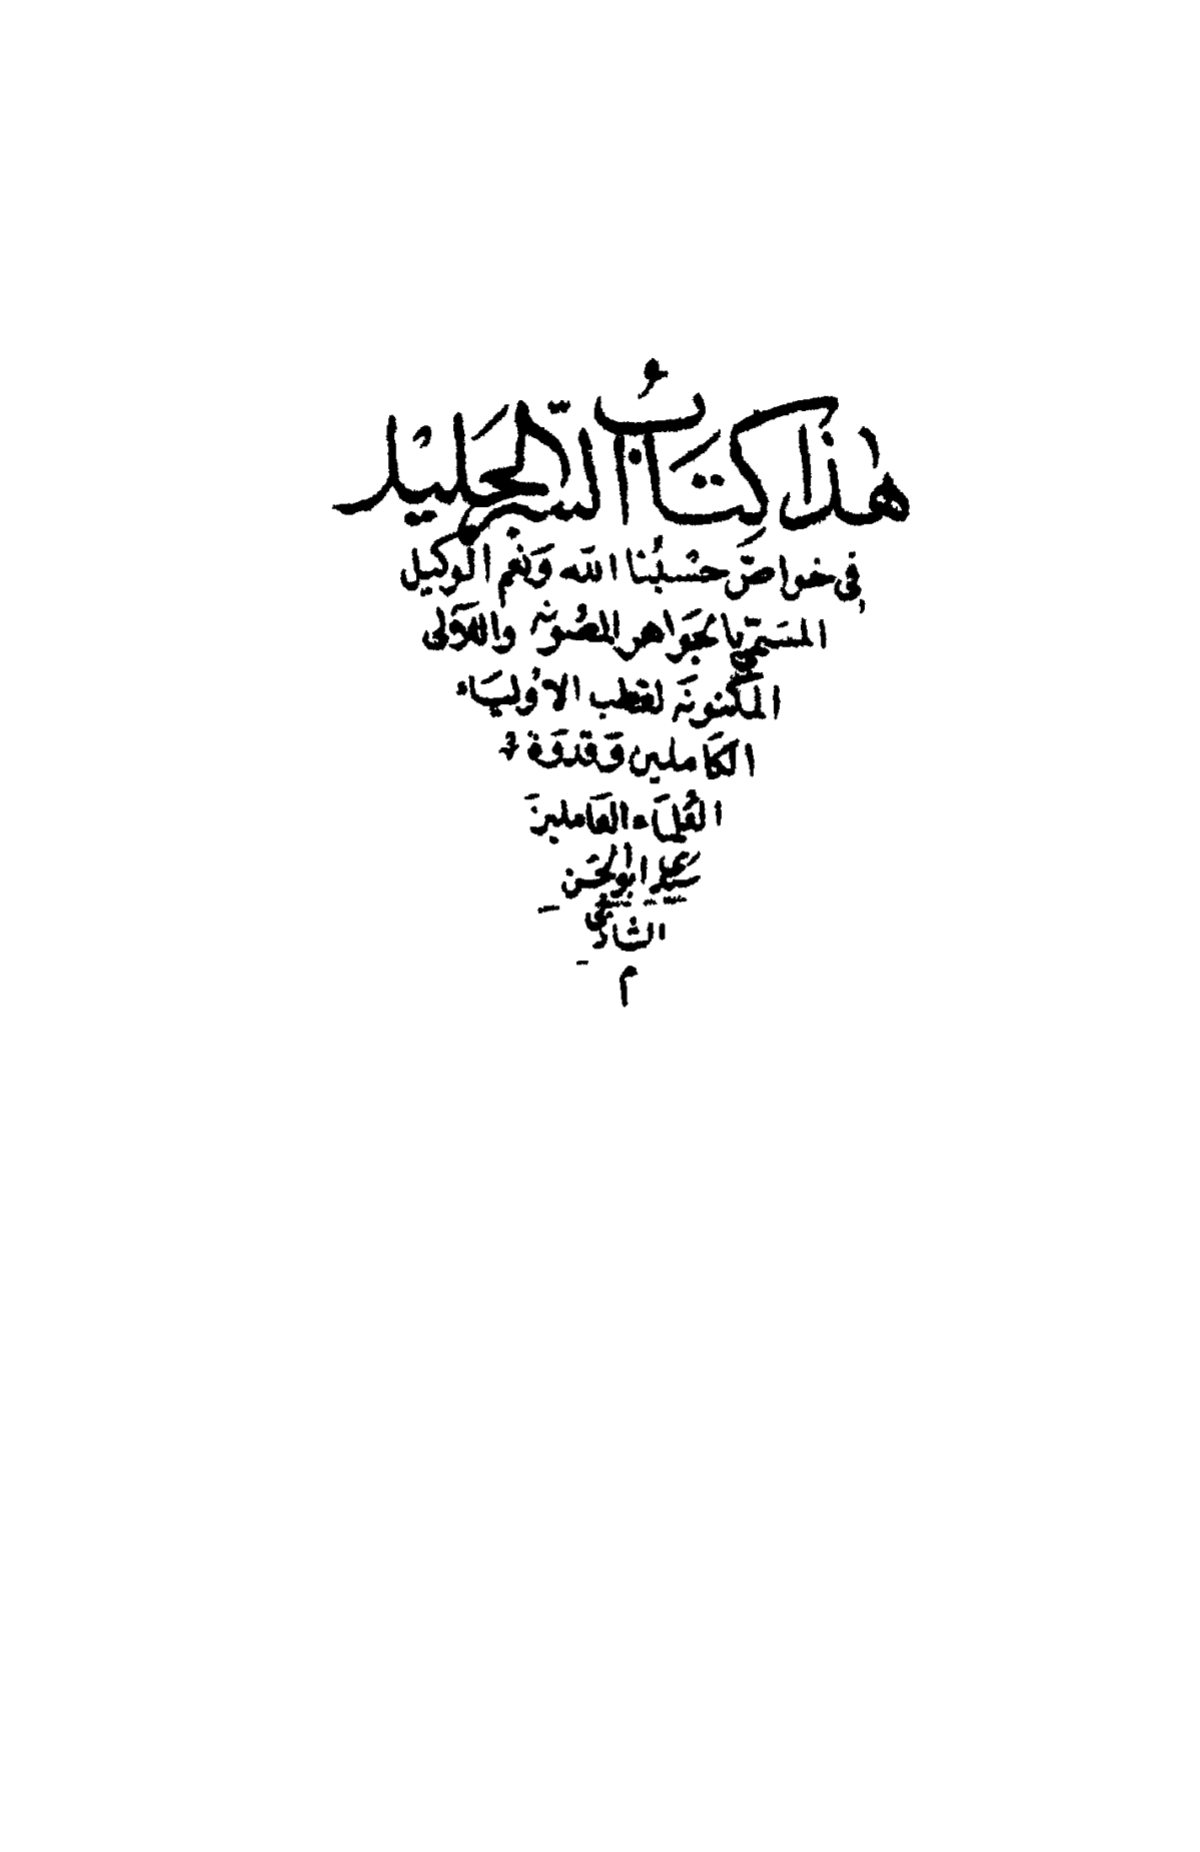 هٰذا كِتَابُ السِّرِّ الجَليْل
في خواصِّ حَسْبُنا الله وَنِعْمَ الوكيل
المسَمّى بالجَواهر المصُونَه واللآلى
المكَنونَه لقطب الاوُليَاء
الكَاملين وَقدوَة
العُلمَاء العَاملينَ
سَيّدى ابو الحَسَن
الشاذلى
م